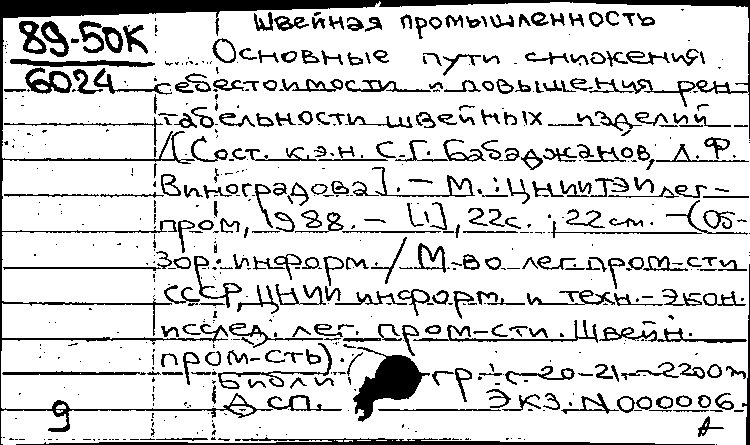 Швейная промышленность
89-50К
6024
Основные пути снижения
себестоимости и повышения рен-
табельности швейных изделий
/[Сост. к.э.н. С.Г. Бабаджанов, Л.Ф.
Виноградова]. — М.: ЦНИИТЭИлег-
пром, 1988. — [1], 22с. ; 22 см. — (Об-
зор. информ. / М-во лег. пром-сти
СССР, ЦНИИ информ. и техн.-экон.
исслед. лег. пром-сти. Швейн.
пром-сть).
Библи гр.: с. 20-21. — 2200
ДСП. Экз. N 000006.
9